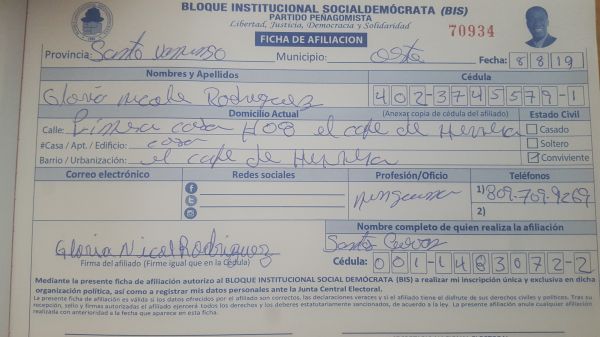 BLOQUE INSTITUCIONAL SOCIALDEMÓCRATA (BIS)
PARTIDO PEÑAGOMISTA
Libertad, Justicia, Democracia y Solidaridad
FICHA DE AFILIACION
70934
Provincia: Santo Domingo Municipio: Oeste Fecha: 8 8 19
Nombres y Apellidos Cédula
Gloria Nicole Rodriguez 402-3745579-1
Domicilio Actual (Anexar copia de cédula del afiliado) Estado Civil
Calle: Primera casa #08 el cafe de Herrera Casado
#Casa / Apt. / Edificio: casa Soltero
Barrio / Urbanización: el cafe de Herrera Conviviente
Correo electrónico Redes sociales Profesión/Oficio Teléfonos
ninguna 1) 809-709-9269
2)
Nombre completo de quien realiza la afiliación
Gloria Nicol Rodriguez Santo Cuevas
Firma del afiliado (Firme igual que en la Cédula) Cédula: 001-1483072-2
Mediante la presente ficha de afiliación autorizo al BLOQUE INSTITUCIONAL SOCIAL DEMÓCRATA (BIS) a realizar mi inscripción única y exclusiva en dicha
organización política, así como a registrar mis datos personales ante la Junta Central Electoral.
La presente ficha de afiliación es válida si los datos ofrecidos por el afiliado son correctos, las declaraciones veraces y si el afiliado tiene el disfrute de sus derechos civiles y políticos. Tras su
recepción, sello y firmas autorizadas el afiliado ejercerá todos los derechos y los deberes estatutariamente sancionados, de acuerdo a la ley. La presente afiliación anula cualquier afiliación
realizada con anterioridad a la fecha que aparece en esta ficha.